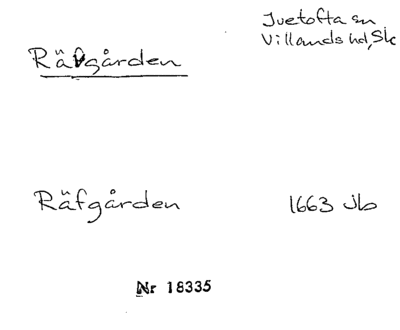 Ivetofta sn
Villands hd, Sk
Rävgården
Räfgården 1663 Jb
Nr 18335